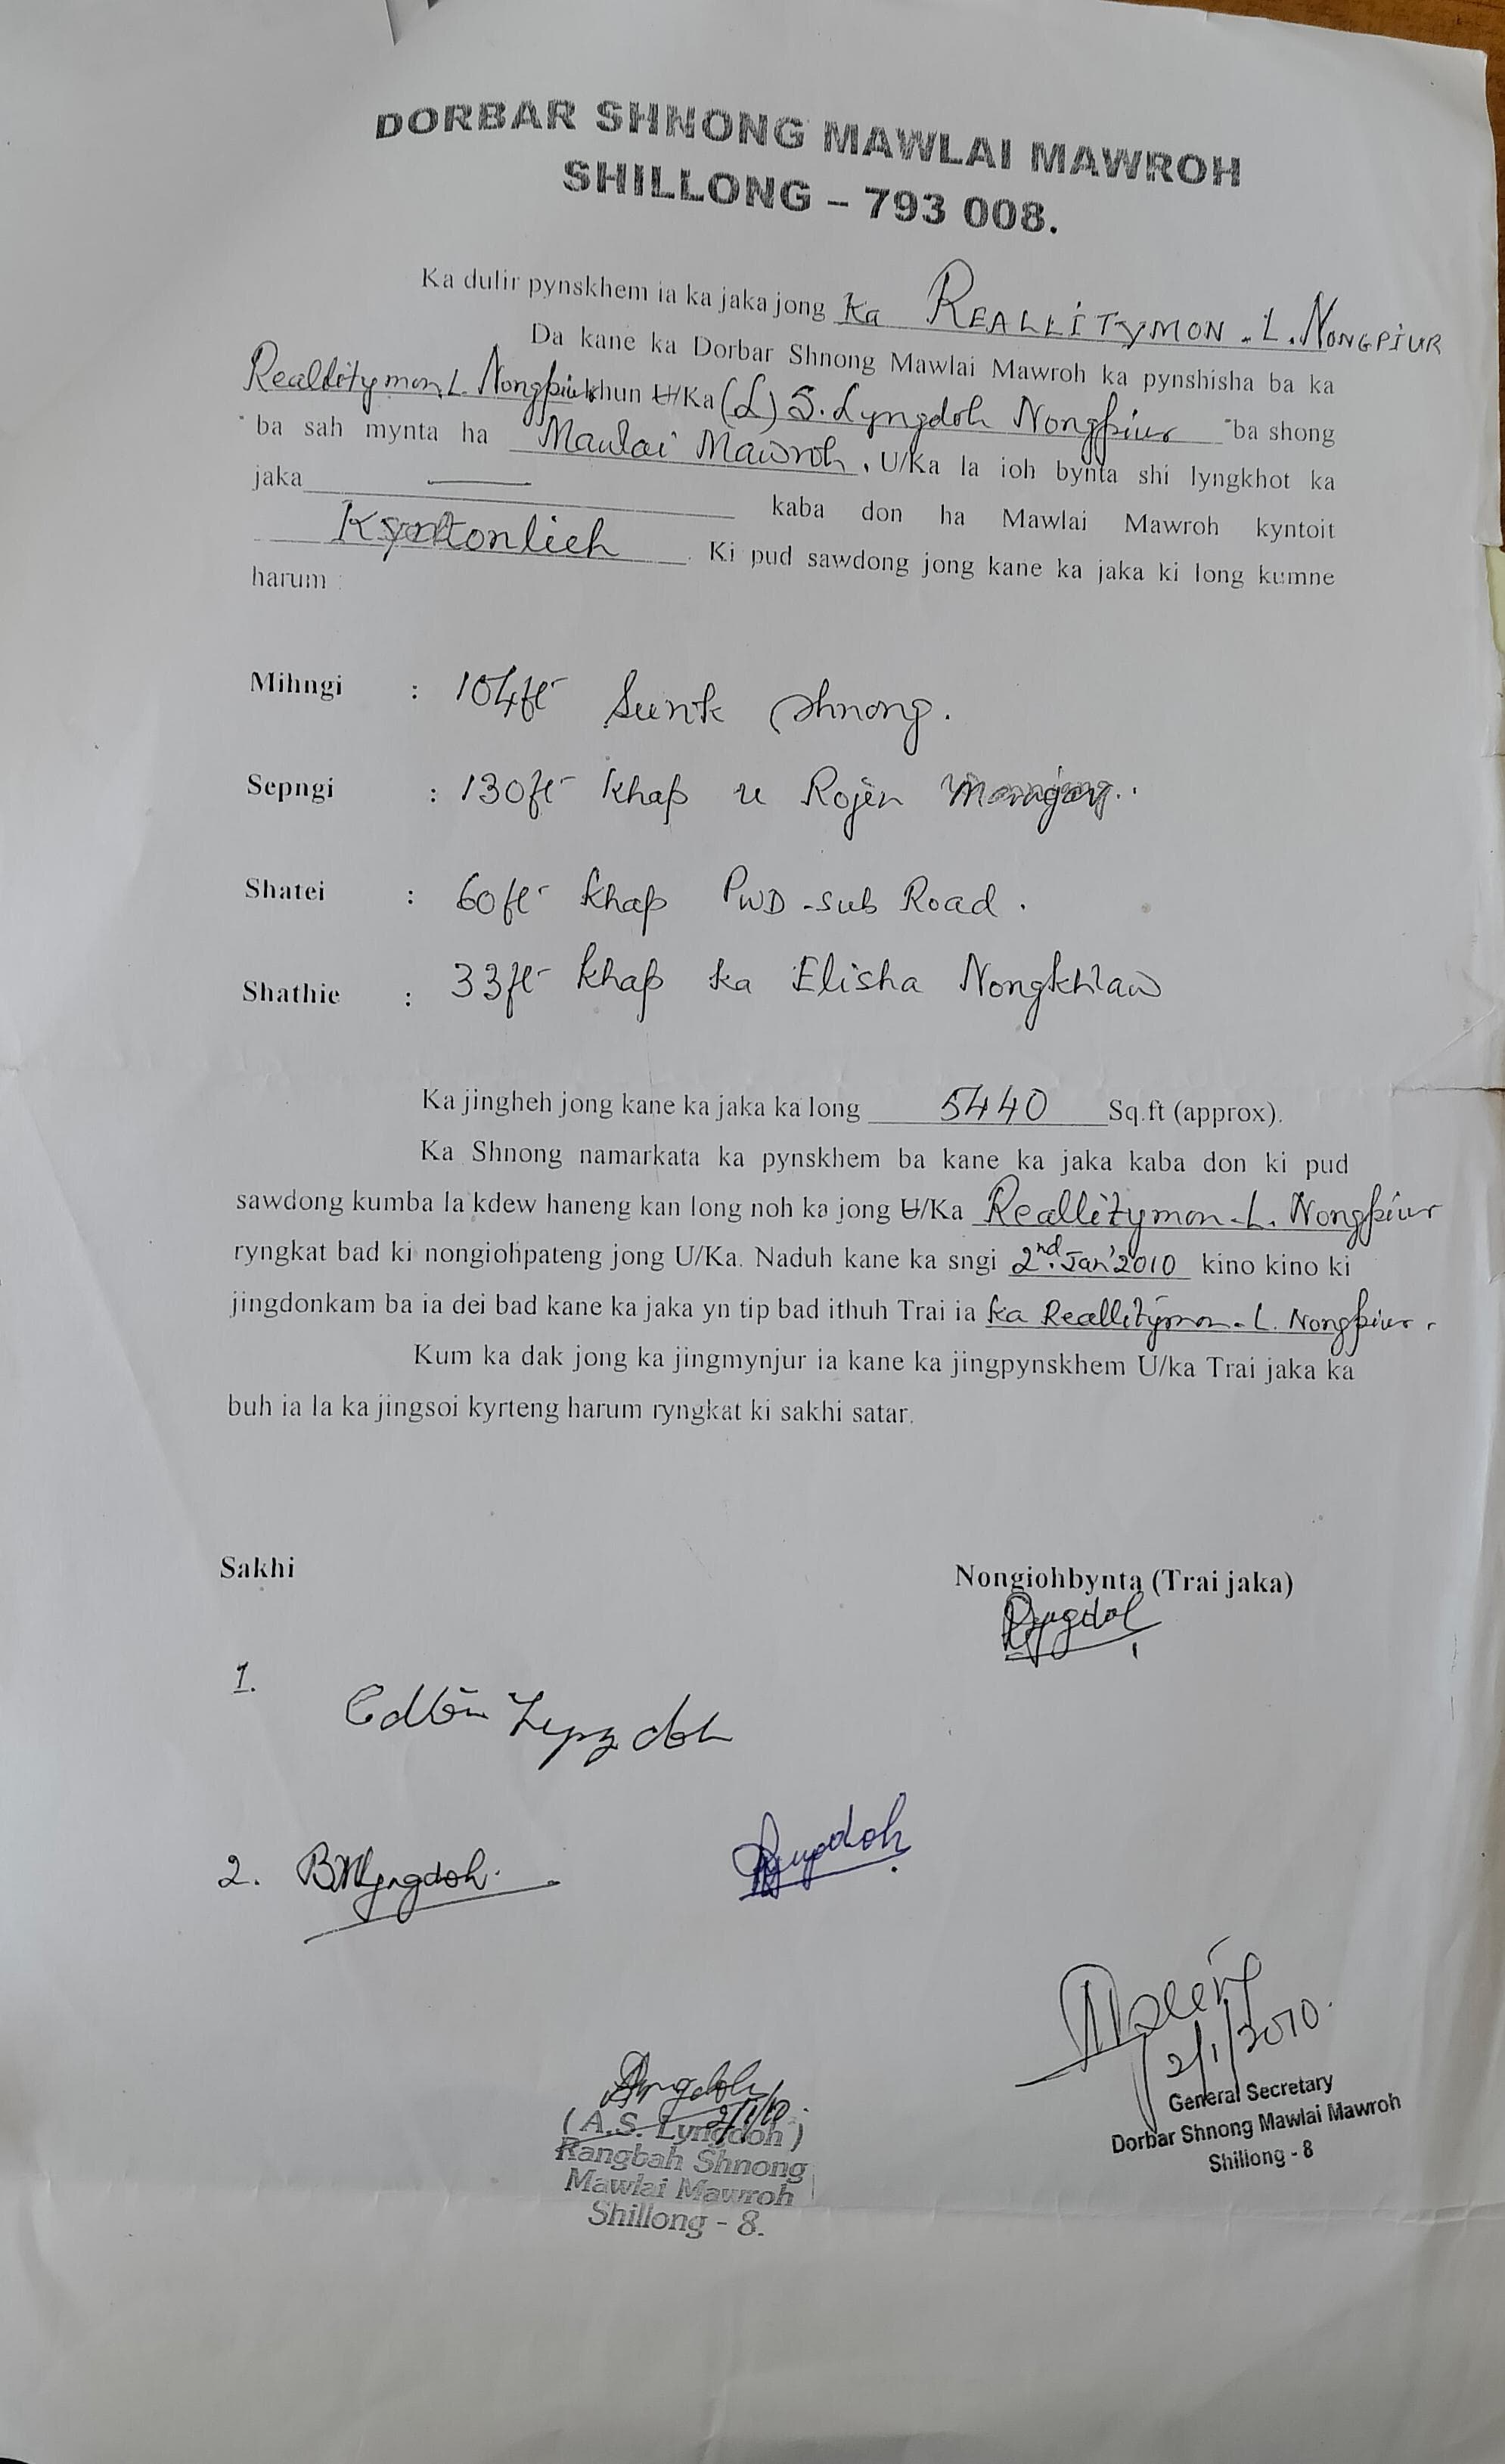 DORBAR SHNONG MAWLAI MAWROH
SHILLONG – 793 008.
Ka dulir pynskhem ia ka jaka jong Ka REALLITYMON . L . NONGPIUR
Da kane ka Dorbar Shnong Mawlai Mawroh ka pynshisha ba ka
Reallitymon L. Nongpiur khun U/Ka (L) S. Lyngdoh Nongpiur ba shong
ba sah mynta ha Mawlai Mawroh, U/Ka la ioh bynta shi lyngkhot ka
jaka kaba don ha Mawlai Mawroh kyntoit
Kyntonlieh. Ki pud sawdong jong kane ka jaka ki long kumne
harum :
Mihngi : 104ft Surok Shnong.
Sepngi : 130ft khap u Rojen
Shatei : 60ft khap PWD-sub Road.
Shathie : 33ft khap ka Elisha Nongkhlaw
Ka jingheh jong kane ka jaka ka long 5440 Sq.ft (approx).
Ka Shnong namarkata ka pynskhem ba kane ka jaka kaba don ki pud
sawdong kumba la kdew haneng kan long noh ka jong U/Ka Reallitymon-L. Nongpiur
ryngkat bad ki nongiohpateng jong U/Ka. Naduh kane ka sngi 2nd. Jan' 2010 kino kino ki
jingdonkam ba ia dei bad kane ka jaka yn tip bad ithuh Trai ia ka Reallitymon-L. Nongpiur.
Kum ka dak jong ka jingmynjur ia kane ka jingpynskhem U/ka Trai jaka ka
buh ia la ka jingsoi kyrteng harum ryngkat ki sakhi satar.
Sakhi Nongiohbynta (Trai jaka)
Lyngdoh
1. Lyngdoh
2. Lyngdoh.
Lyngdoh
2/1/2010.
General Secretary
Dorbar Shnong Mawlai Mawroh
Shillong - 8
Lyngdoh
2/1/10
( A.S. Lyngdoh )
Rangbah Shnong
Mawlai Mawroh
Shillong - 8.